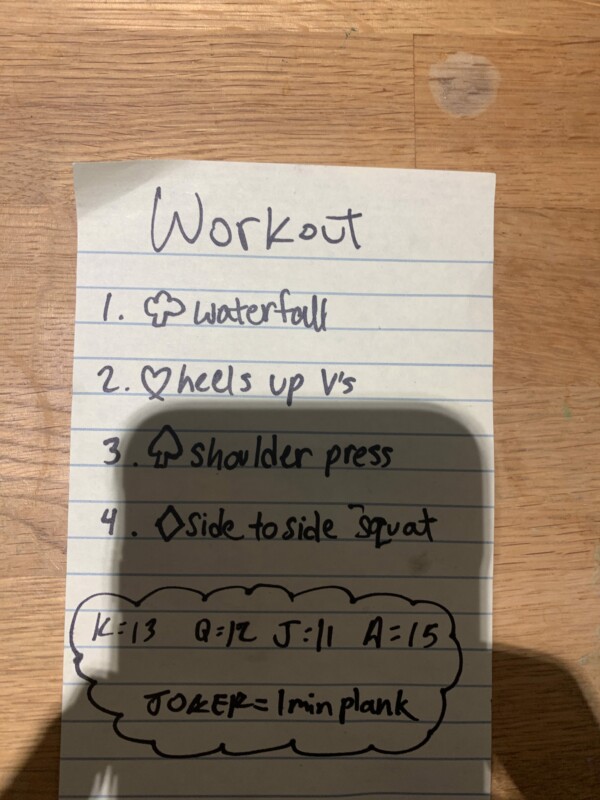 Workout
1. ♧ waterfall
2. ♡ heels up V's
3. ♤ shoulder press
4. ◇ side to side squat
K=13 Q=12 J=11 A=15
JOKER=1min plank